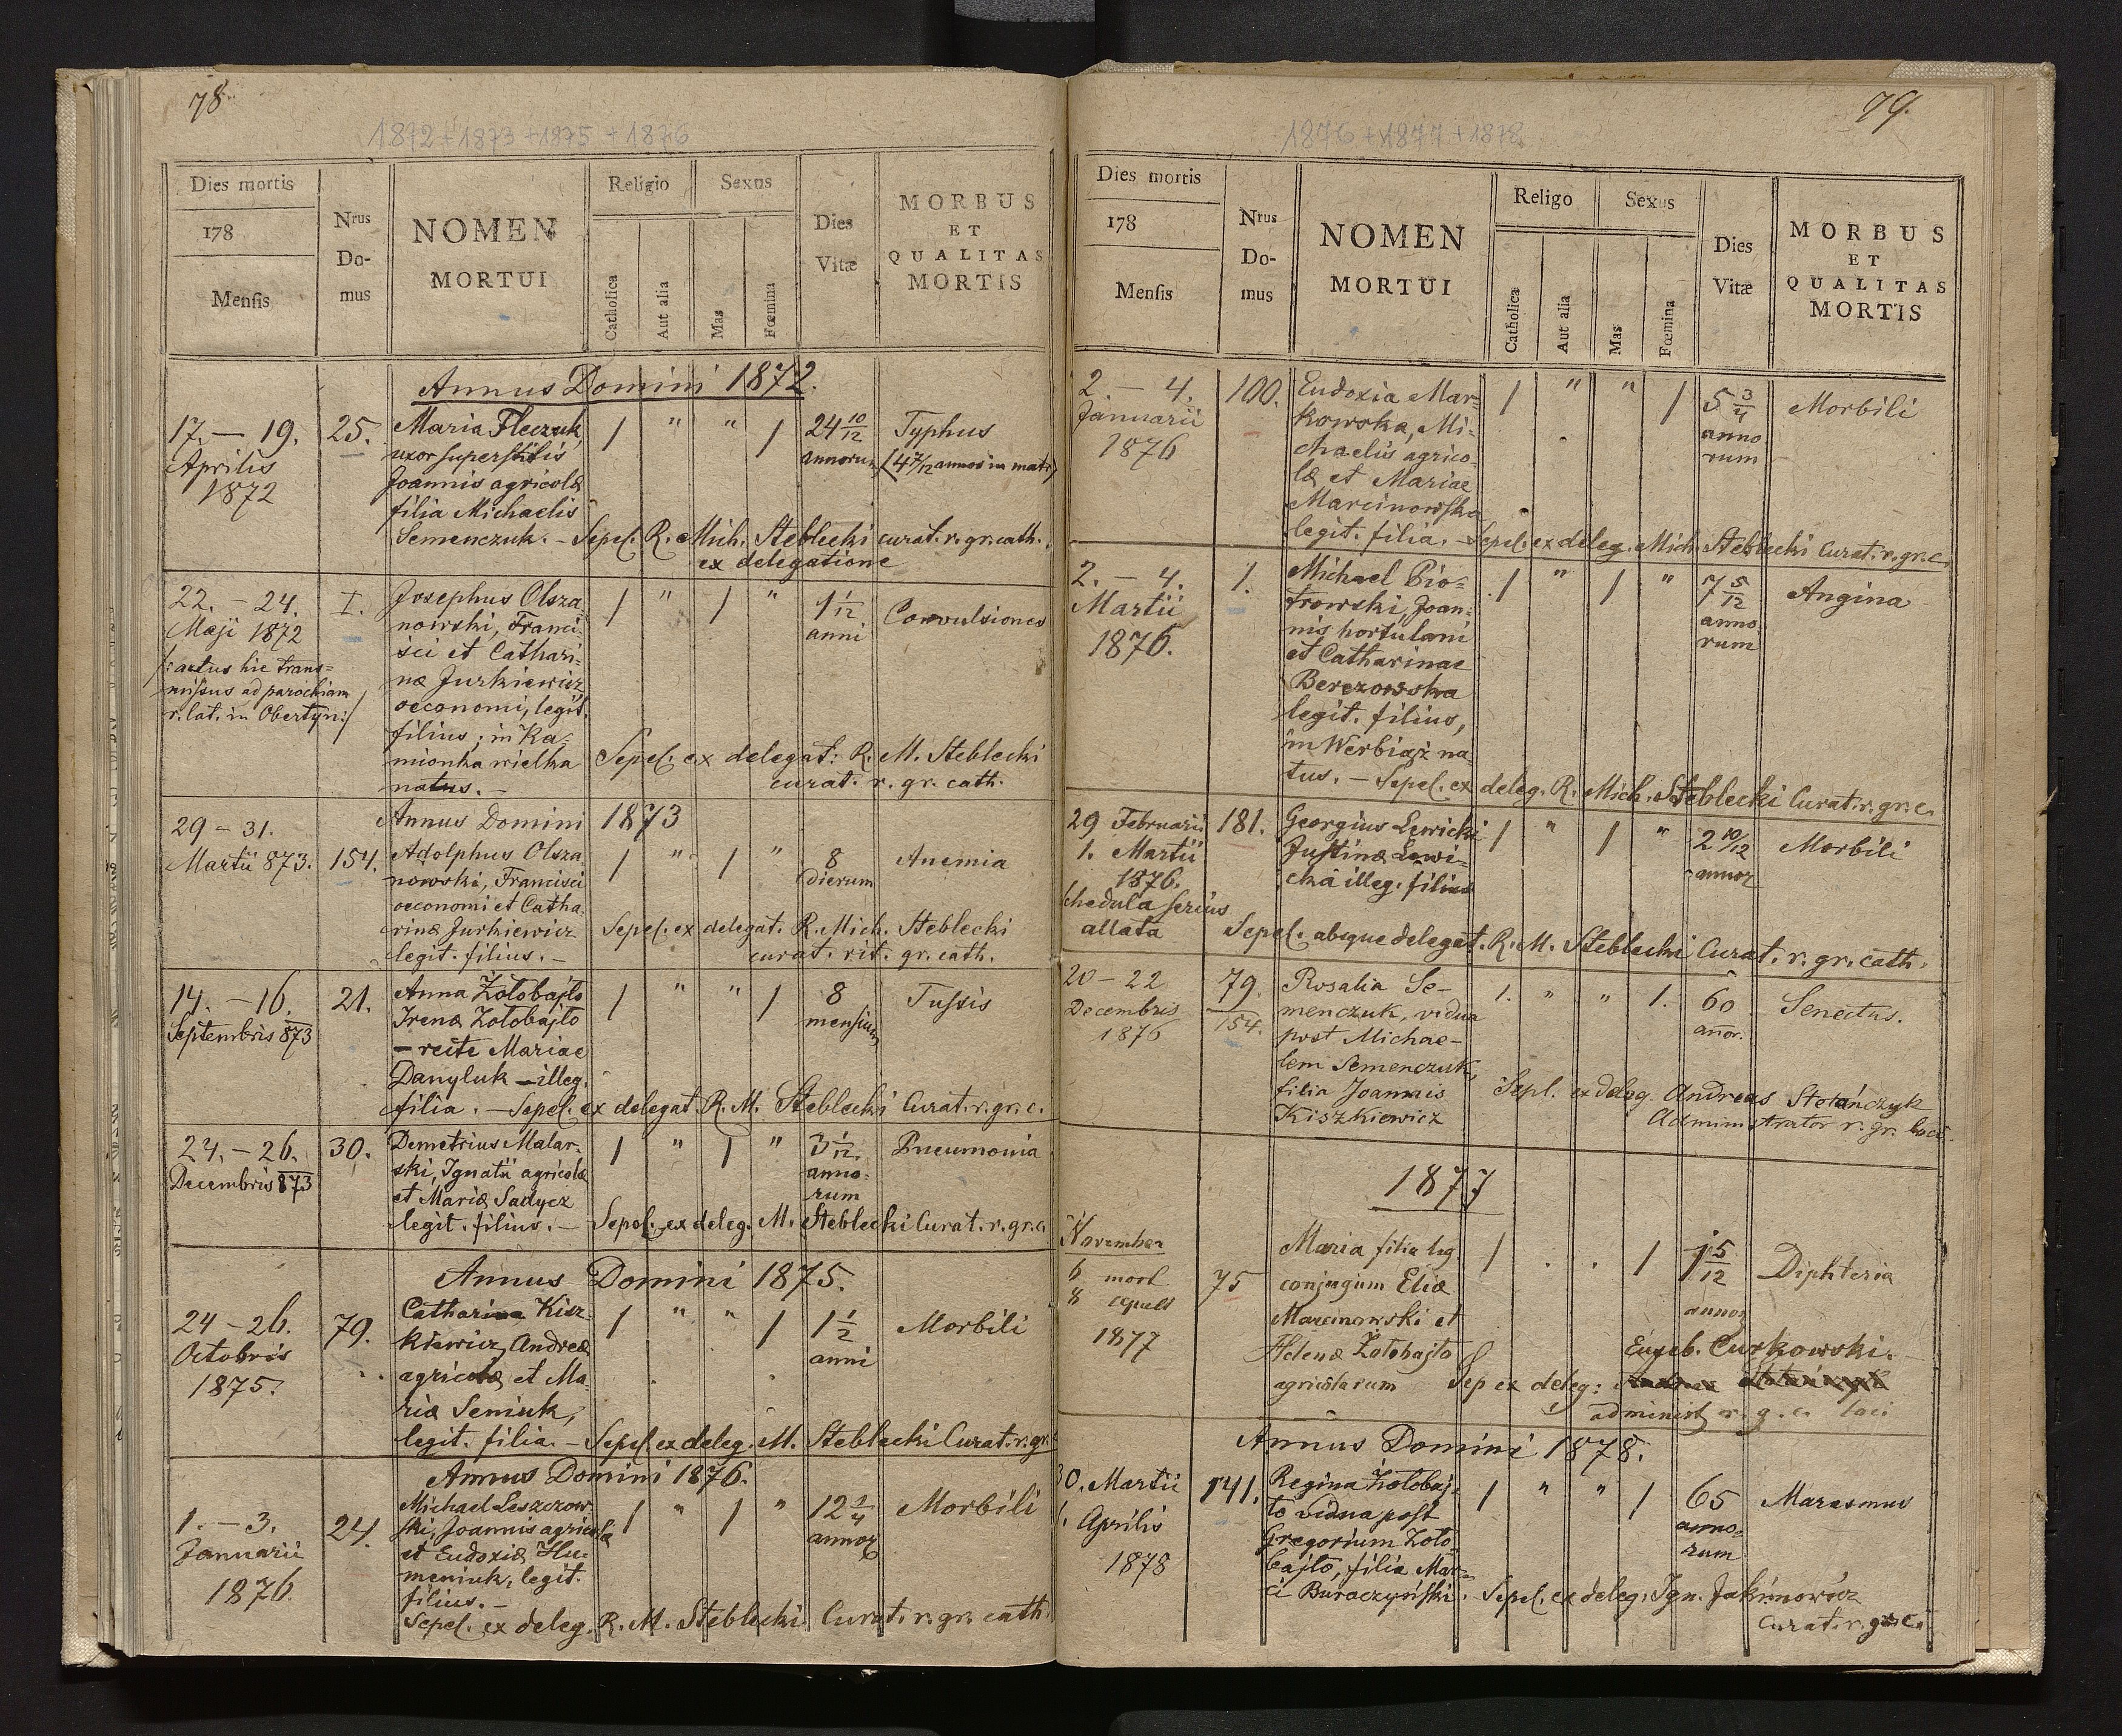 78
1872 + 1873 + 1875 + 1876
Dies mortis
178
Mensis
Nrus
Do-
mus
NOMEN
MORTUI
Religio
Catholica
Aut alia
Sexus
Mas
Fœmina
Dies
Vitæ
MORBUS
ET
QUALITAS
MORTIS
Annus Domini 1872.
17. – 19.
Aprilis
1872
25.
Maria Fleczuk,
uxor superstitis
Joannis agricolæ
filia Michaelis
Semenczuk. – Sepel. R. Mich. Steblecki curat. r. gr. cath.
ex delegatione
1 " " 1
24 10/12
annorum
Typhus
(4 7/12 annos in matr)
22. – 24.
Maji 1872
/: actus hic trans=
missus ad parochiam
r. lat. in Obertyn :/
I.
Josephus Olsza
nowski, Franci-
sci et Cathari=
næ Jurkiewicz
oeconomi, legit.
filius; in Ka-
mionka wielka
natus. –
1 " 1 "
1 1/12
anni
Convulsiones
Sepel. ex delegat: R. M. Steblecki
curat. r. gr. cath.
Annus Domini 1873
29 – 31.
Martii 873.
154.
Adolphus Olsza
nowski, Francisci
oeconomi et Catha
rinæ Jurkiewicz
legit. filius. –
1 " 1 "
8
dierum
Anemia
Sepel. ex delegat. R. Mich. Steblecki
curat. rit. gr. cath.
14. – 16.
Septembris 873
21.
Anna Zołobajło
Irenæ Zołobajło
– recte Mariae
Danyluk – illeg.
filia. – Sepel. ex delegat. R. M. Steblecki Curat. r. gr. c.
1 " " 1
8
mensium
Tussis
24. – 26.
Decembris 873
30.
Demetrius Malar-
ski, Ignatii agricolæ
et Mariæ Sadycz
legit. filius. – Sepel. ex deleg. M. Steblecki Curat. r. gr. c.
1 " 1 "
3 1/12
anno-
rum
Pneumonia
Annus Domini 1875.
24 – 26.
Octobris
1875.
79.
Catharina Kisz-
kiewicz, Andreæ
agricolæ et Ma-
riæ Seniuk,
legit. filia. – Sepel. ex deleg. M. Steblecki Curat. r. gr.
1 " " 1
1 1/2
anni
Morbili
Annus Domini 1876.
1. – 3.
Januarii
1876.
24.
Michael Leszczow-
ski, Joannis agricolæ
et Eudoxiæ Hu-
meniuk, legit.
filius. –
Sepel. ex deleg. R. M. Steblecki Curat. r. gr. cath.
1 " 1 "
12 1/4
annor
Morbili
79.
1876 + 1877 + 1878
Dies mortis
178
Mensis
Nrus
Do-
mus
NOMEN
MORTUI
Religo
Catholica
Aut alia
Sexus
Mas
Fœmina
Dies
Vitæ
MORBUS
ET
QUALITAS
MORTIS
2 – 4.
Januarii
1876
100.
Eudoxia Mar-
kowska, Mi-
chaelis agrico-
læ, et Mariae
Marcinowska
legit. filia. – Sepel. ex deleg. Mich. Steblecki Curat. r. gr. c.
1 " " 1
5 3/4
anno
rum
Morbili
2. – 4.
Martii
1876.
1.
Michael Pio=
trowski, Joan-
nis hortulani
et Catharinae
Berezowska
legit. filius,
in Werbiąż na
tus. – Sepel. ex deleg. R. Mich. Steblecki Curat. r. gr. c.
1 " 1 "
7 5/12
anno
rum
Angina
29 Februarii
1. Martii
1876.
schedula serius
allata
181.
Georgius Lewicki
Justinæ Lewi=
cka illeg. filius
1 " 1 "
2 10/12
annor
Morbili
Sepel. absque delegat. R. M. Steblecki Curat. r. gr. cath.
20 – 22
Decembris
1876
79.
154.
Rosalia Se-
menczuk, vidua
post Michae-
lem Semenczuk,
filia Joannis
Kiszkiewicz
1. " " 1.
60
anor.
Senectus.
Sepl. ex deleg Andreas Stefańczyk
Administrator r. gr. loci.
1877
November
6 mort
8 sepult
1877
75
Maria filia leg
conjugum Eliæ
Marcinowski et
Helenæ Zołobajło
agricolarum
1 . . 1
1 5/12
annor
Diphteria
Euseb. Curkowski.
Sep ex deleg:
administ r. g. c. loci
Annus Domini 1878.
30. Martii
1. Aprilis
1878
141.
Regina Zołobaj-
ło vidua post
Gregorium Zoło
bajło, filia Mar=
ci Buraczyński.
1 " " 1
65
anno=
rum
Marasmus
Sepel. ex deleg. Ign. Jakimowicz
Curat. r. gr. c.